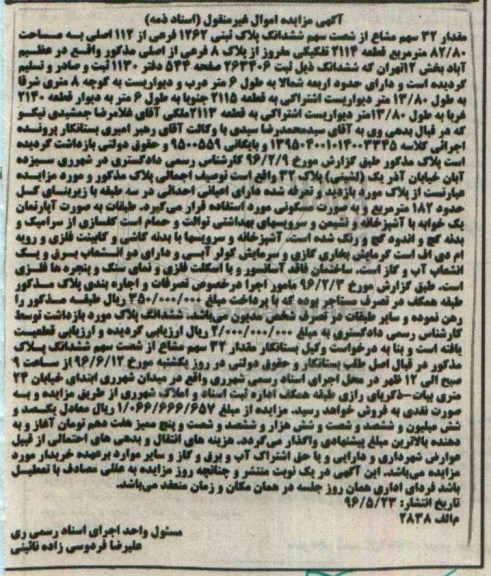 آگهی مزایده اموال غیرمنقول (اسناد ذمه)
مقدار ۳۲ سهم مشاع از شصت سهم ششدانگ پلاک ثبتی ۱۲۶۲ فرعی از ۱۱۲ اصلی به مساحت
۸۲/۸۰ مترمربع قطعه ۲۱۱۴ تفکیکی مفروز از پلاک ۸ فرعی از اصلی مذکور واقع در عظیم
آباد بخش ۱۲تهران که ششدانگ ذیل ثبت ۲۶۳۴۰۶ صفحه ۵۴۴ دفتر ۱۱۳۰ ثبت و صادر و تسلیم
گردیده است و دارای حدود اربعه شمالا به طول ۶ متر درب و دیواریست به کوچه ۸ متری شرقا
به طول ۱۳/۸۰ متر دیواریست اشتراکی به قطعه ۲۱۱۵ جنوبا به طول ۶ متر به دیوار قطعه ۲۱۴۰
غربا به طول ۱۳/۸۰متر دیواریست اشتراکی به قطعه ۲۱۱۳ملکی آقای غلامرضا جمشیدی نیکو
که در قبال بدهی وی به آقای سیدمحمدرضا سیدی با وکالت آقای رهبر امیری بستانکار پرونده
اجرائی کلاسه ۱۳۹۵۰۴۰۰۱۰۱۴۰۰۲۳۴۵ و بایگانی ۹۵۰۰۵۵۹ و حقوق دولتی بازداشت گردیده
است پلاک مذکور طبق گزارش مورخ ۹۶/۲/۹ کارشناس رسمی دادگستری در شهرری سیزده
آبان خیابان آذر یک (لشینی) پلاک ۳۲ واقع است توصیف اجمالی پلاک مذکور و مورد مزایده
عبارتست از پلاک مورد بازدید و تعرفه شده دارای اعیانی احداثی در سه طبقه با زیربنای کل
حدود ۱۸۲ مترمربع و به صورت مسکونی مورد استفاده قرار می‌گیرد. طبقات به صورت آپارتمان
یک خوابه با آشپزخانه و نشیمن و سرویسهای بهداشتی توالت و حمام است کفسازی از سرامیک و
بدنه گچ و اندود گچ و رنگ شده است. آشپزخانه و سرویسها با بدنه کاشی و کابینت فلزی و رویه
ام دی اف است گرمایش بخاری گازی و سرمایش کولر آبی و دارای دو انشعاب برق و یک
انشعاب آب و گاز است. ساختمان فاقد آسانسور و با اسکلت فلزی و نمای سنگ و پنجره ها فلزی
است. طبق گزارش مورخ ۹۶/۲/۳ مامور اجرا درخصوص تصرفات و اجاره بندی پلاک مذکور
طبقه همکف در تصرف مستاجر بوده که با پرداخت مبلغ ۲۵۰/۰۰۰/۰۰۰ ریال طبقه مذکور را
رهن نموده و سایر طبقات در تصرف شخص مدیون می‌باشد. ششدانگ پلاک مورد بازداشت توسط
کارشناس رسمی دادگستری به مبلغ ۲/۰۰۰/۰۰۰/۰۰۰ ریال ارزیابی گردیده و ارزیابی قطعیت
یافته است و بنا به درخواست وکیل بستانکار مقدار ۳۲ سهم مشاع از شصت سهم ششدانگ پلاک
مذکور در قبال اصل طلب بستانکار و حقوق دولتی در روز یکشنبه مورخ ۹۶/۶/۱۲ از ساعت ۹
صبح الی ۱۲ ظهر در محل اجرای اسناد رسمی شهرری واقع در میدان شهرری ابتدای خیابان ۲۴
متری بیات-ذکریای رازی طبقه همکف اداره ثبت اسناد و املاک شهرری از طریق مزایده و به
صورت نقدی به فروش خواهد رسید. مزایده از مبلغ ۱/۰۶۶/۶۶۶/۶۵۷ ریال معادل یکصد و
شش میلیون و ششصد و شصت و شش هزار و ششصد و شصت و پنج ممیز هفت دهم تومان آغاز و به
دهنده بالاترین مبلغ پیشنهادی واگذار می‌گردد. هزینه های انتقال و بدهی های احتمالی از قبیل
عوارض شهرداری و دارایی و یا حق اشتراک آب و برق و گاز و سایر موارد برعهده خریدار مورد
مزایده می‌باشد. این آگهی در یک نوبت منتشر و چنانچه روز مزایده به عللی مصادف با تعطیل
باشد فردای اداری همان روز جلسه در همان مکان و زمان منعقد می‌باشد.
تاریخ انتشار: ۹۶/۵/۲۳
م‌الف ۲۸۳۸
مسئول واحد اجرای اسناد رسمی ری
علیرضا فردوسی زاده نائینی